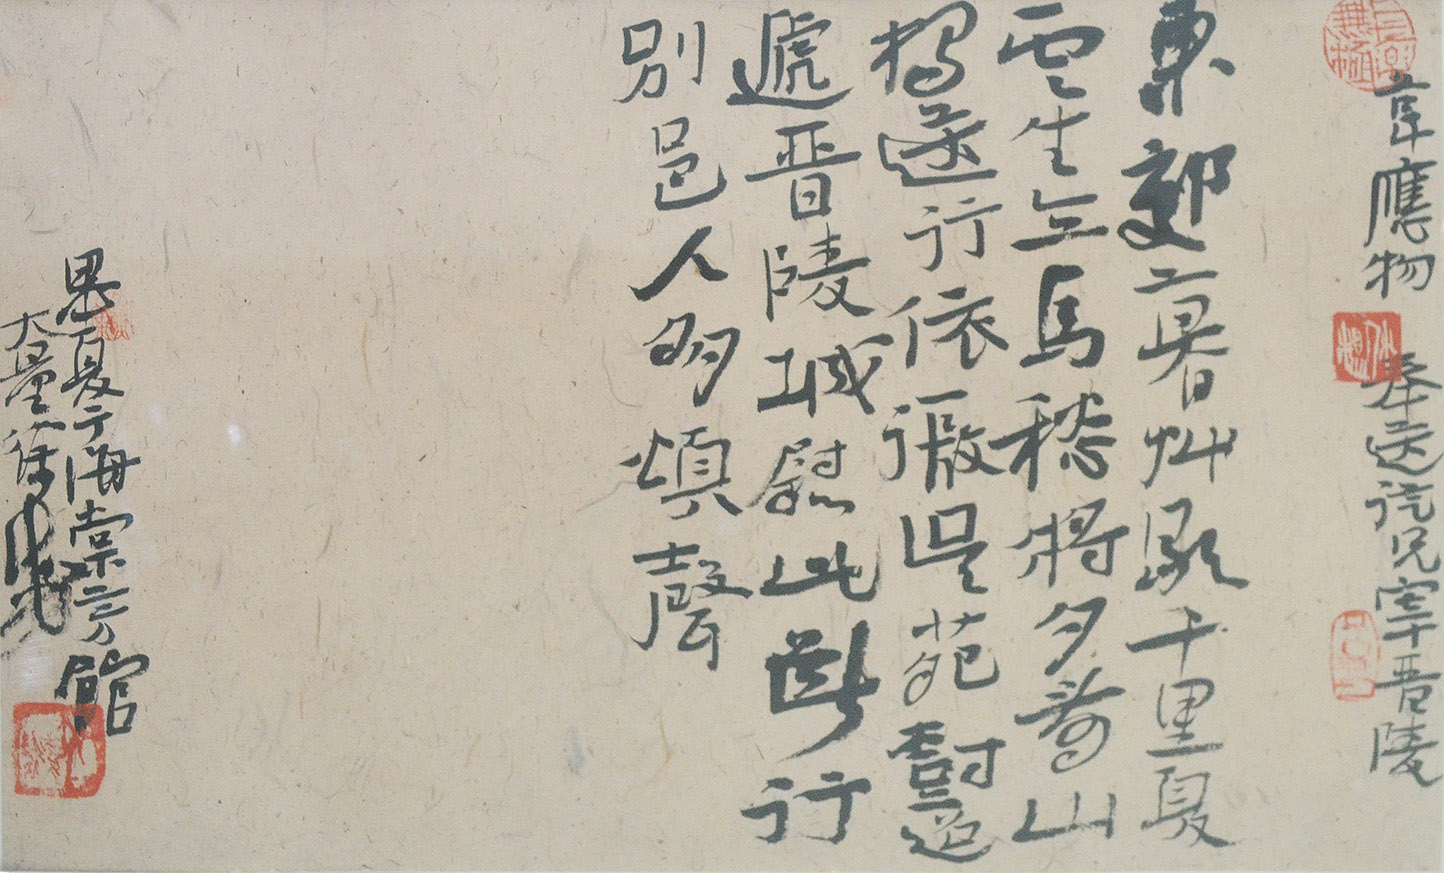 長樂無極
韋應物 奉送從兄宰晉陵
東郊暮艸歇千里夏
雲生立馬愁將夕看山
獨送行依微吳苑樹迢
遞晉陵城慰此斷行
別邑人多頌聲
夏于海棠館
大徐